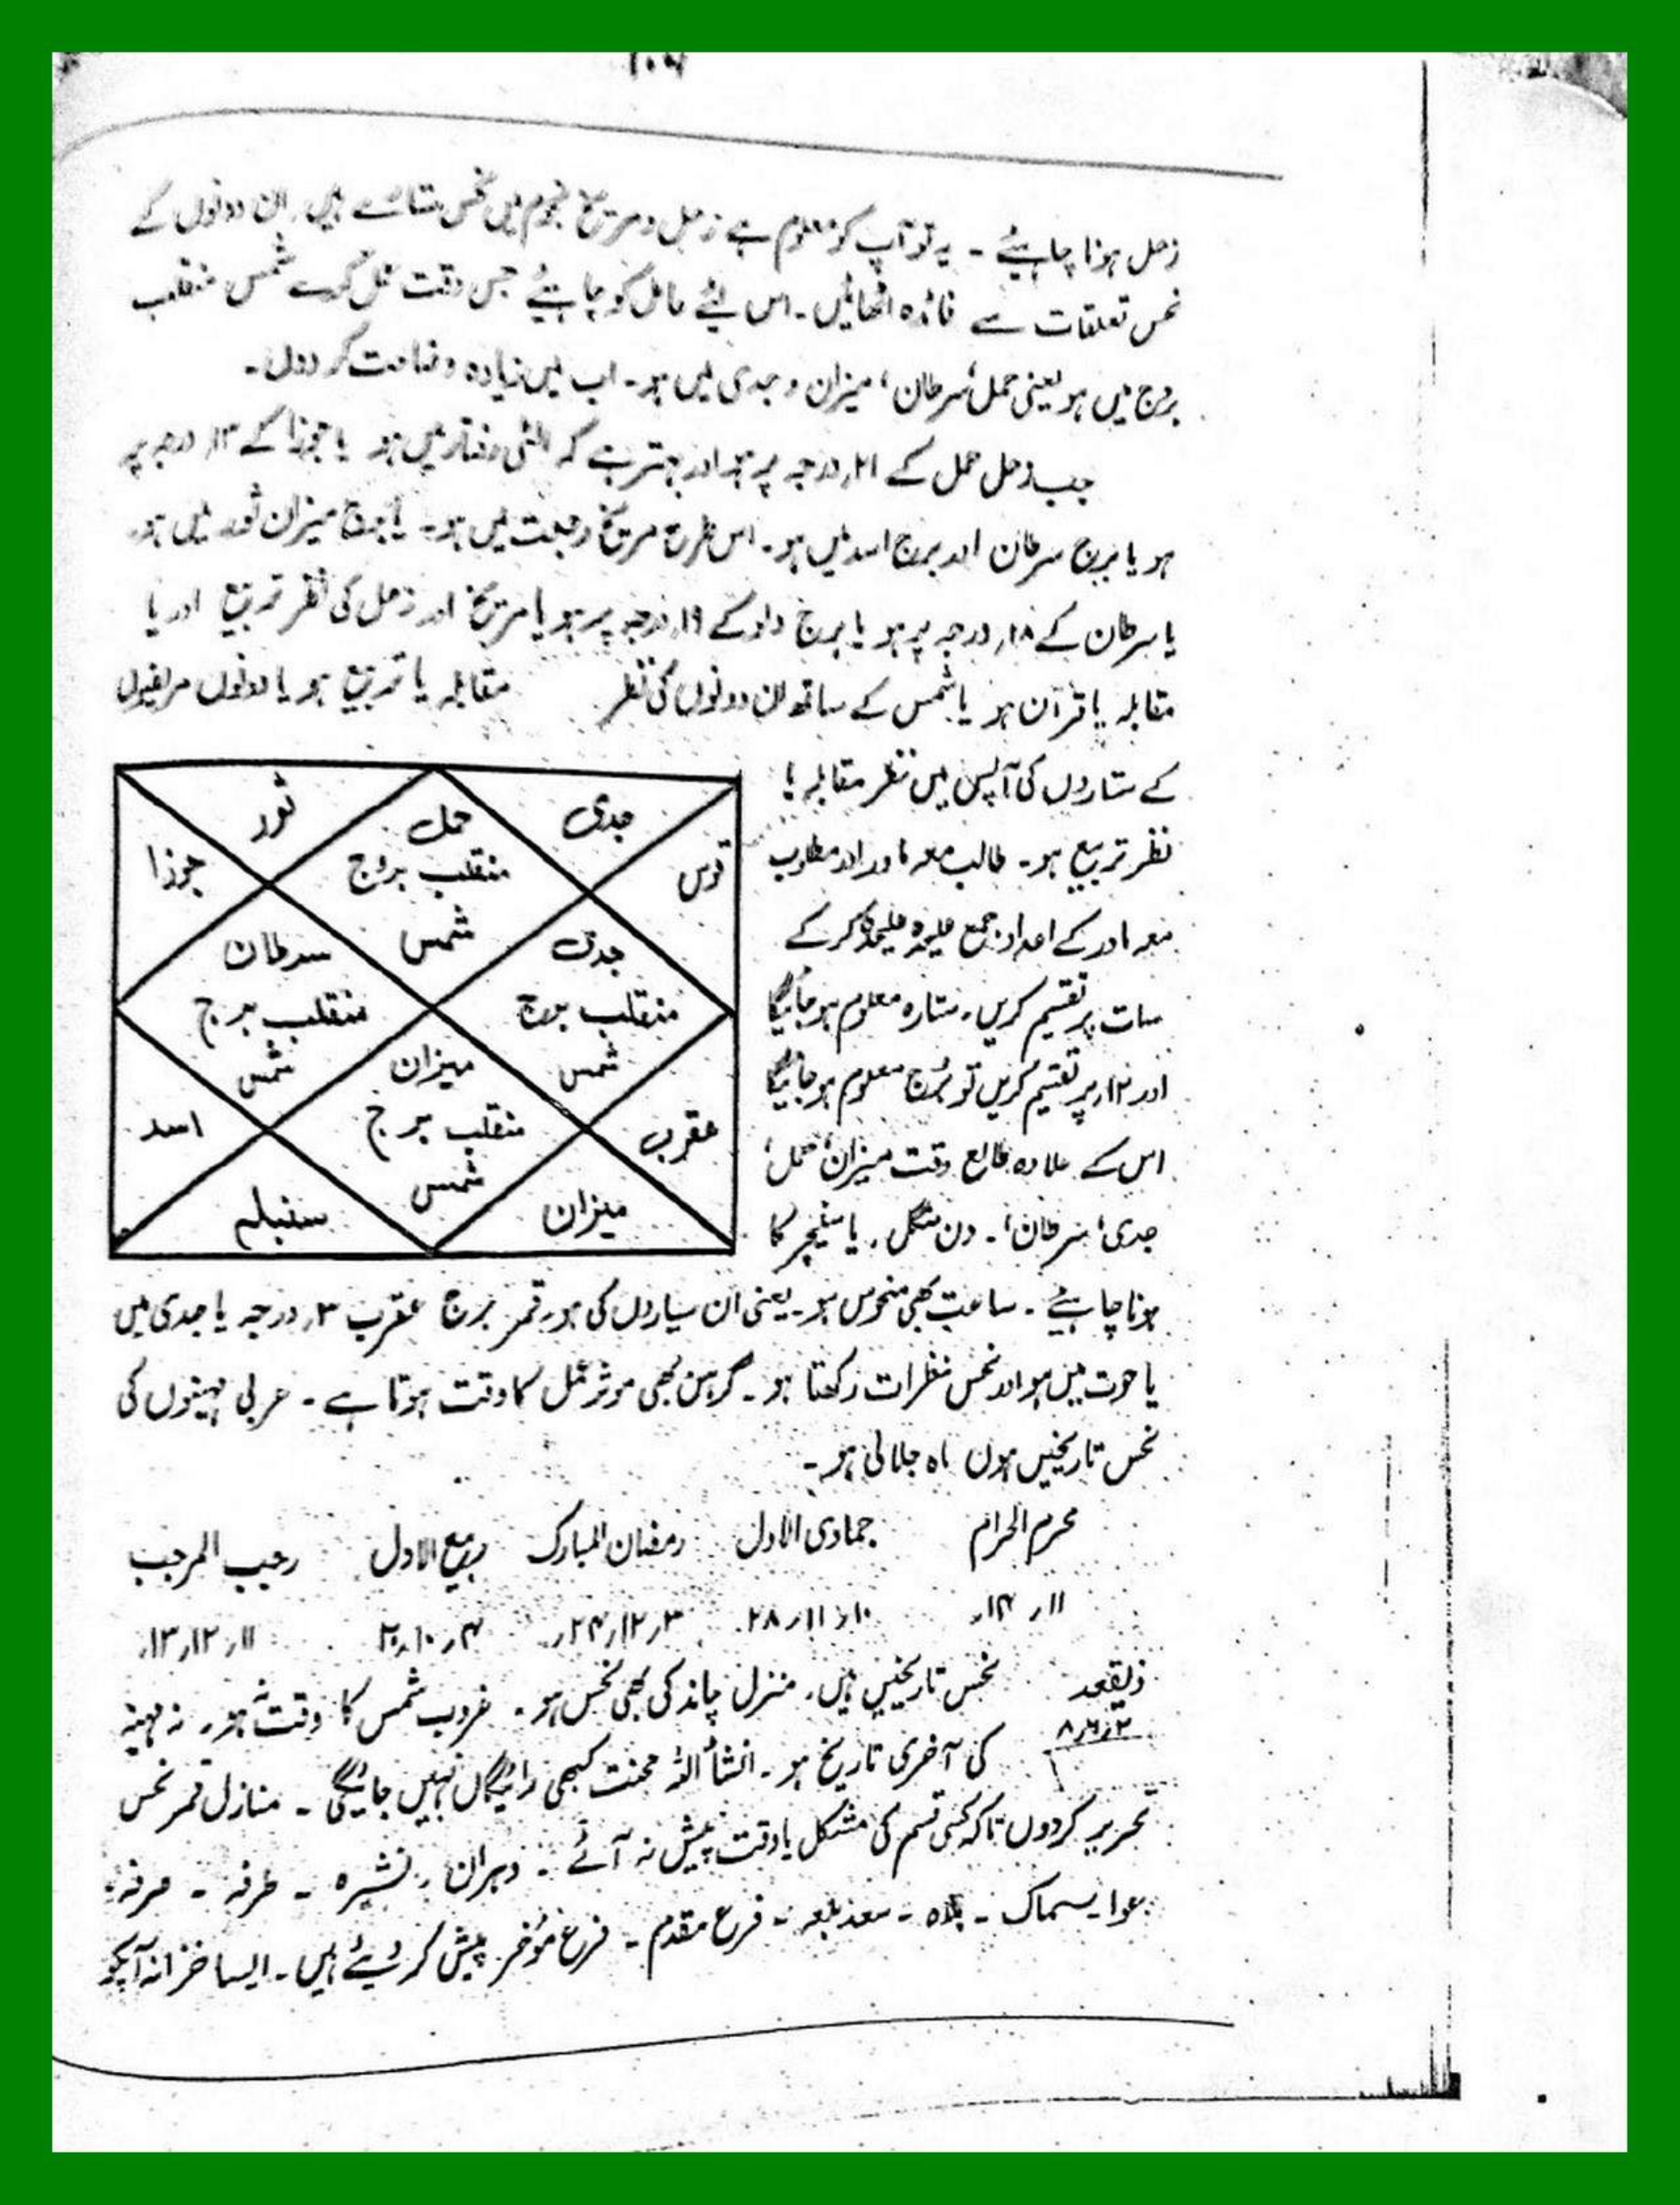 زحل ہونا چاہیئے ۔ یہ تو آپ کو معلوم ہے زحل و مریخ نجوم میں نحس ستارے ہیں۔ ان دونوں کے
نحس تعلقات سے فائدہ اٹھائیں۔ اس لئے عامل کو چاہیئے جس وقت عمل کرے شمس منقلب
بروج میں ہو یعنی حمل، سرطان، میزان و جدی میں ہو۔ اب میں زیادہ وضاحت کر دوں۔
جب زحل حمل کے ۲۱ درجہ پر ہو اور بہتر ہے کہ الٹی رفتار میں ہو یا جوزا کے ۱۳ درجہ پر
ہو یا برج سرطان اور برج اسد میں ہو۔ اس طرح مریخ رجعت میں ہو۔ یا برج میزان ثور میں ہو۔
یا سرطان کے ۱۸ درجہ پر ہو یا برج دلو کے ۱۹ درجہ پر ہو یا مریخ اور زحل کی نظر تربیع اور یا
مقابلہ یا قرآن ہو یا شمس کے ساتھ ان دونوں کی نظر مقابلہ یا تربیع ہو یا دونوں حریفوں
کے ستاروں کی آپس میں نظر مقابلہ یا
نظر تربیع ہو۔ طالب معہ مادر اور مطلوب
معہ مادر کے اعداد جمع علیحدہ علیحدہ کر کے
سات پر تقسیم کریں۔ ستارہ معلوم ہو جائیگا
اور ۱۲ پر تقسیم کریں تو برج معلوم ہو جائیگا
اس کے علاوہ طالع وقت میزان، حمل،
جدی، سرطان،۔ دن منگل، یا سنیچر کا
ثور
حمل
منقلب بروج
شمس
جدی
جوزا
قوس
سرطان
منقلب برج
شمس
جدی
منقلب برج
شمس
میزان
منقلب برج
شمس
اسد
عقرب
سنبلہ
میزان
ہونا چاہیئے ۔ ساعت بھی منحوس ہو۔ یعنی ان سیاروں کی ہو۔ قمر برج عقرب ۳ درجہ یا جدی میں
یا حوت میں ہو اور نحس نظرات رکھتا ہو۔ گرہن بھی موثر عمل کا وقت ہوتا ہے ۔ عربی مہینوں کی
نحس تاریخیں ہوں ماہ جلالی ہو۔
محرم الحرام جمادی الاول رمضان المبارک ربیع الاول رجب المرجب
۱۱ر ۱۴ر ۱۰ر ۱۱ر ۲۸ ۳ر ۱۲ر ۲۴ر ۴ر ۱۰ر ۲۰ ۱۱ر ۱۲ر ۱۳ر
ذیقعد نحس تاریخیں ہیں۔ منزل چاند کی بھی نحس ہو۔ غروب شمس کا وقت نہ ہو۔ نہ مہینہ
۲ر۶ر۸ کی آخری تاریخ ہو۔ انشأ اللہ محنت کبھی رائیگاں نہیں جائیگی ۔ منازل قمر نحس
تحریر کر دوں تاکہ کسی قسم کی مشکل یا دقت پیش نہ آئے ۔ دبران ۔ نشرہ ۔ طرفہ ۔ صرفہ۔
عوا سماک ۔ بلدہ ۔ سعد بلعہ ۔ فرع مقدم ۔ فرع مؤخر پیش کر دیئے ہیں۔ ایسا خزانہ آپکو